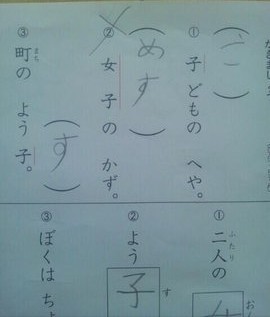 (こ)
① 子どもの へや。
(めす)
② 女子の かず。
(す)
③ 町の よう子。
まち
① 二人の
ふたり
② よう子
す
③ ぼくは